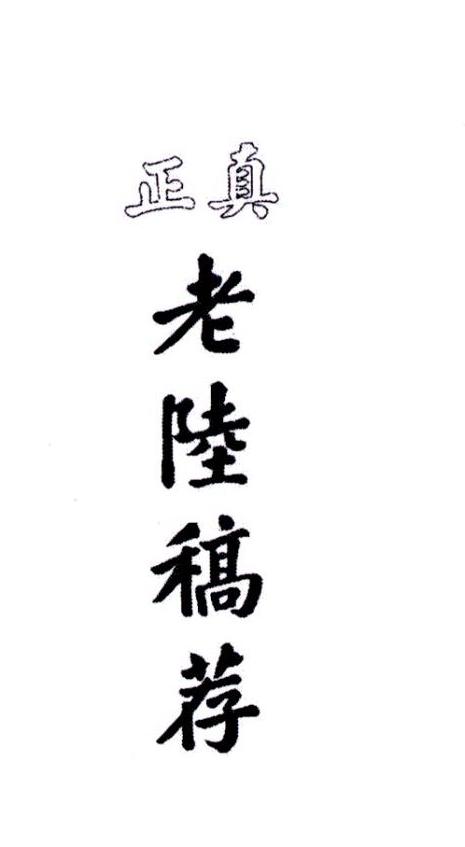 真正
老陸稿荐